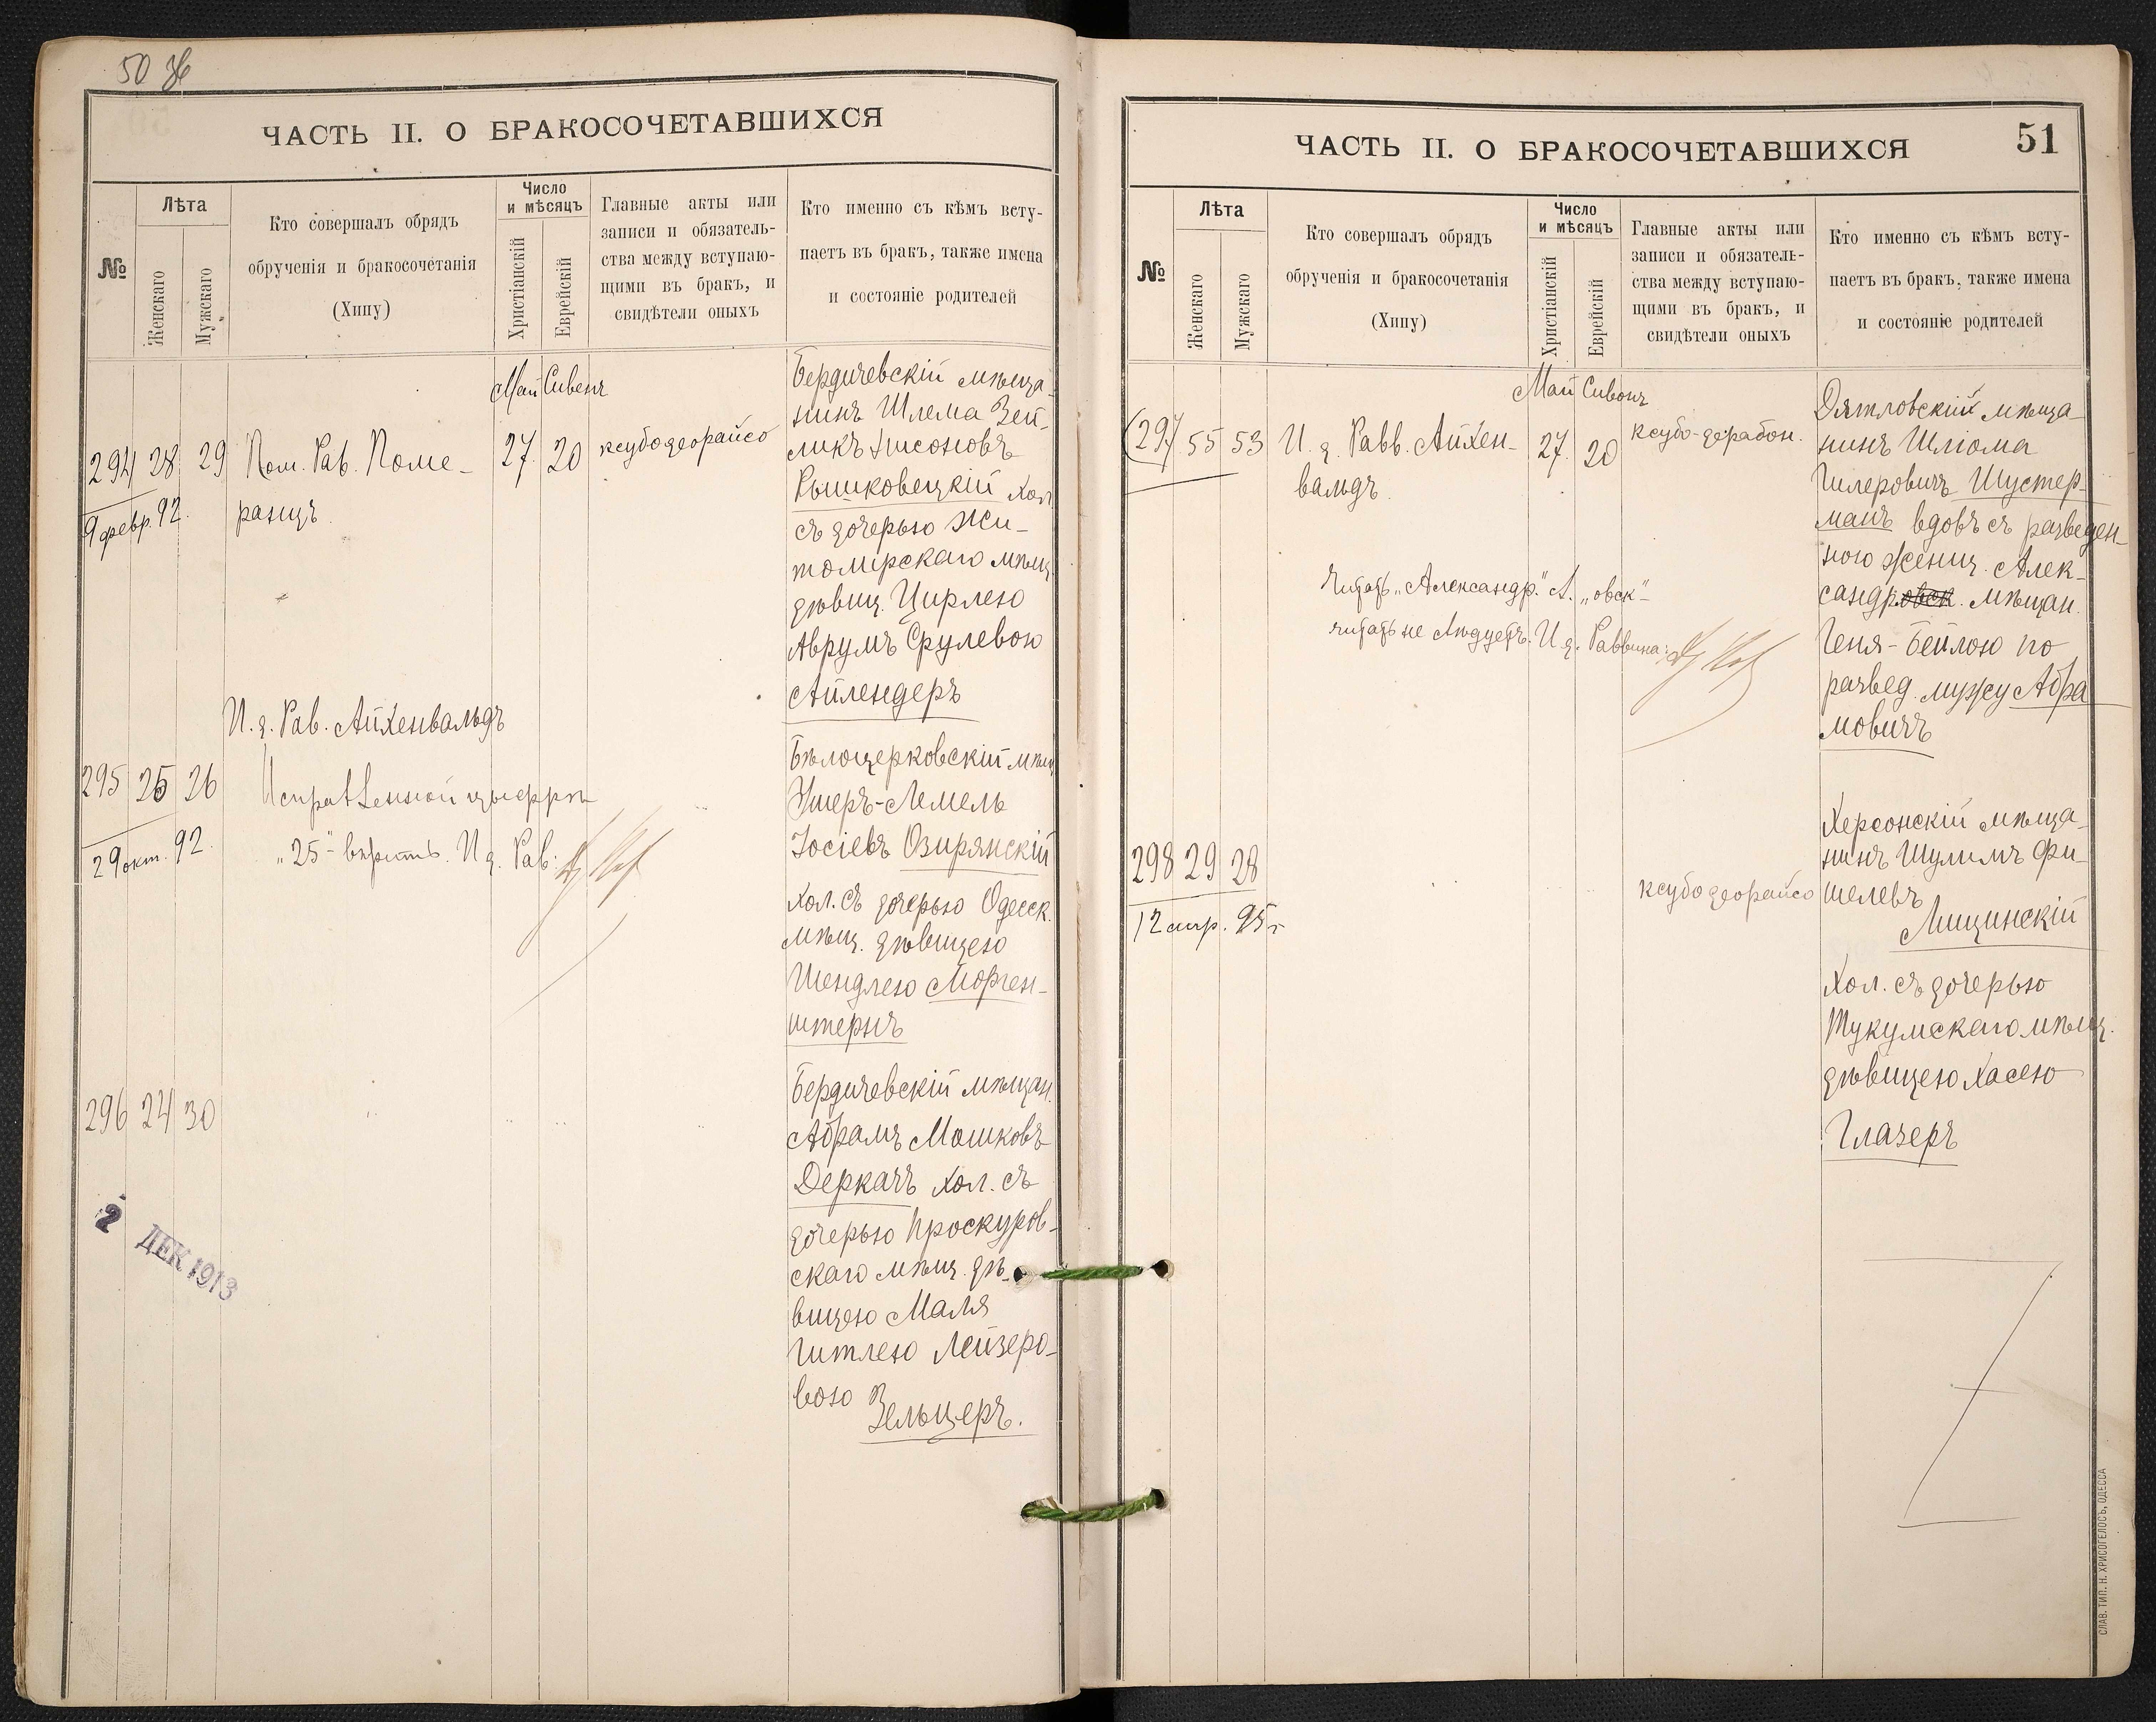 50
ЧАСТЬ II. О БРАКОСОЧЕТАВШИХСЯ
№
Лѣта
Женскаго
Мужскаго
Кто совершалъ обрядъ
обрученія и бракосочетанія
(Хипу)
Число
и мѣсяцъ
Христіанскій
Еврейскій
Главные акты или
записи и обязатель-
ства между вступаю-
щими въ бракъ, и
свидѣтели оныхъ
Кто именно съ кѣмъ всту-
паетъ въ бракъ, также имена
и состояніе родителей
Май Сивенъ
294 28 29 Пом. Рав. Поме-
ранцъ
27 20 ксубо деорайсо
9 февр. 92.
Бердичевскій мѣща-
нинъ Шлема Зей-
ликъ Нисоновъ
Рышковецкій хол
съ дочерью Жи-
томірскаго мѣщ.
дѣвиц. Цирлею
Аврумъ Срулевою
Айлендеръ
И. д. Рав. Айхенвальдъ
295 25 26
29 окт. 92.
Исправленной цыфрѣ
„25" вѣрить. И д. Рав:
Бѣлоцерковскій мѣщ
Ушеръ-Лемель
Іосіевъ Озирянскій
хол. съ дочерью Одесск.
мѣщ. дѣвицею
Шендлею Морген-
штернъ
296 24 30
Бердичевскій мѣщан.
Абрамъ Мошковъ
Деркачъ хол. съ
дочерью Проскуров-
скаго мѣщ. дѣ-
вицею Маля
Гитлею Лейзеро-
вою Зельцеръ.
2 ДЕК 1913
ЧАСТЬ II. О БРАКОСОЧЕТАВШИХСЯ
51
№
Лѣта
Женскаго
Мужскаго
Кто совершалъ обрядъ
обрученія и бракосочетанія
(Хипу)
Число
и мѣсяцъ
Христіанскій
Еврейскій
Главные акты или
записи и обязатель-
ства между вступаю-
щими въ бракъ, и
свидѣтели оныхъ
Кто именно съ кѣмъ всту-
паетъ въ бракъ, также имена
и состояніе родителей
Май Сивонъ
297 55 53 И. д. Равв. Айхен-
вальдъ
27. 20 ксубо-дерабон.
Дятловскій мѣща-
нинъ Шліома
Гилеровичъ Шустер-
манъ вдовъ съ разведен-
ною женщ. Алек-
сандровск. мѣщан.
Геня-Бейлою по
развед. мужу Абра
мовичъ
Читать „Александр." А. „овск"-
читать не слѣдуетъ. И д. Раввина:
298 29 28
12 апр. 95 г
ксубо деорайсо
Херсонскій мѣща-
нинъ Шулимъ Фи-
шелевъ
Лищинскій
хол. съ дочерью
Тукумскаго мѣщ.
дѣвицею Хасею
Глазеръ
СЛАВ. ТИП. Н. ХРИСОГЕЛОСЪ, ОДЕССА